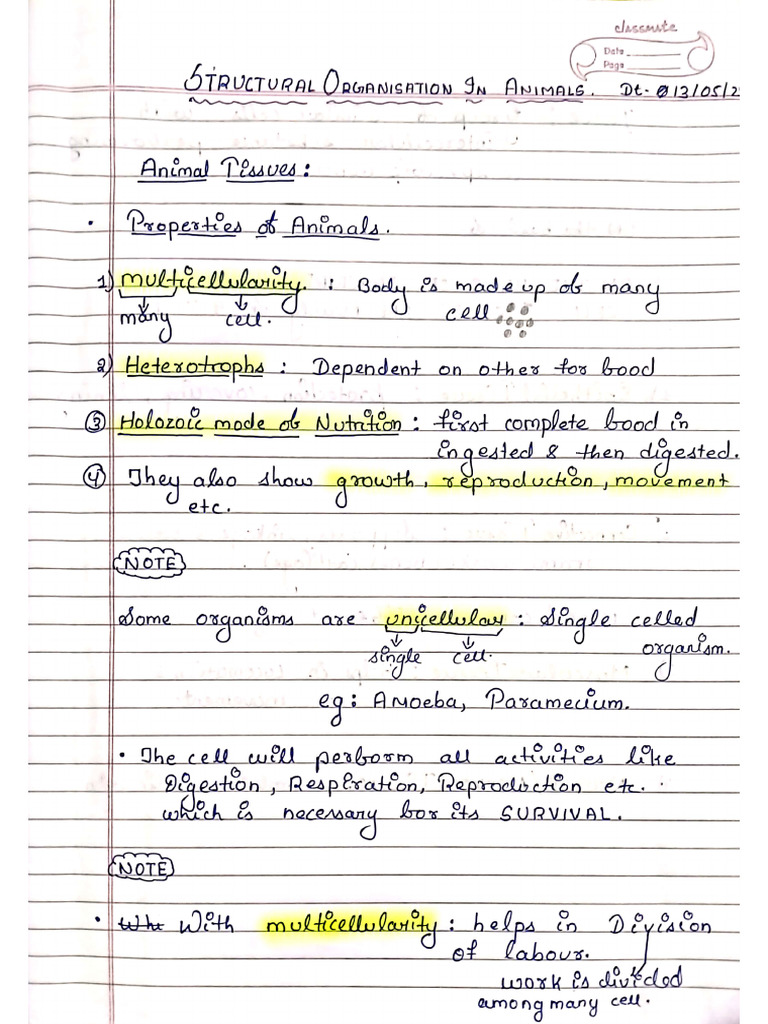 classmate
Date
Page
STRUCTURAL ORGANISATION IN ANIMALS. Dt- 13/05/2
Animal Tissues:
• Properties of Animals.
1) multicellularity. : Body is made up of many
many cell. cell
2) Heterotrophs : Dependent on other for food
③ Holozoic mode of Nutrition : first complete food in
ingested & then digested.
④ They also show growth, reproduction, movement
etc.
NOTE
Some organisms are unicellular : Single celled
single cell. organism.
eg: Amoeba, Paramecium.
• The cell will perform all activities like
Digestion, Respiration, Reproduction etc.
which is necessary for its SURVIVAL.
NOTE
• With multicellularity : helps in Division
of labour.
work is divided
among many cell.